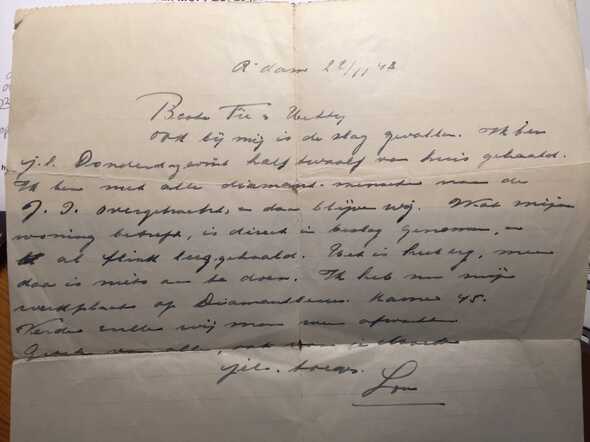 A'dam 22/11 43
Beste Fie & Hetty
Ook bij mij is de slag gevallen. Ik ben
j.l. Donderdagavond half twaalf van huis gehaald.
Ik ben met alle diamant-menschen naar de
J. I. overgebracht, en daar blijven wij. Wat mijn
woning betreft, is direct in beslag genomen, en
al flink leeg gehaald. Het is heel erg, maar
daar is niets aan te doen. Ik heb nu mijn
werkplaats op Diamantbeurs. Kamer 45.
Verder zullen wij maar weer afwachten
Groeten van alle, ook voor
Lou